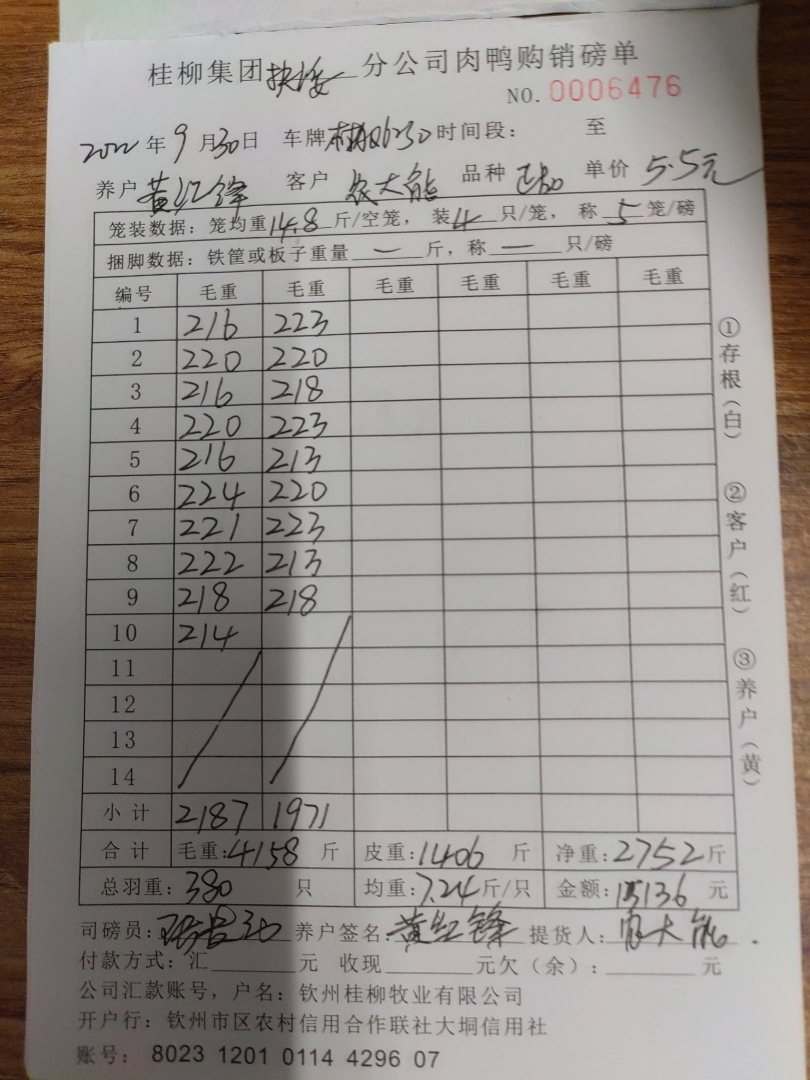 桂柳集团 分公司肉鸭购销磅单
NO. 0006476
2022年9月30日 车牌 时间段: 至
养户 黄红锋 客户 农大能 品种 单价 5.5元
笼装数据: 笼均重14.8斤/空笼, 装4只/笼, 称5笼/磅
捆脚数据: 铁筐或板子重量—斤, 称—只/磅
编号 毛重 毛重 毛重 毛重 毛重 毛重
1 216 223
2 220 220
3 216 218
4 220 223
5 216 213
6 224 220
7 221 223
8 222 213
9 218 218
10 214
11
12
13
14
小计 2187 1971
合计 毛重:4158斤 皮重:1406斤 净重:2752斤
总羽重:380只 均重:7.24斤/只 金额:15136元
司磅员: 养户签名:黄红锋 提货人:农大能.
付款方式: 汇 元 收现 元欠(余): 元
公司汇款账号, 户名: 钦州桂柳牧业有限公司
开户行: 钦州市区农村信用合作联社大垌信用社
账号: 8023 1201 0114 4296 07
①存根(白)
②客户(红)
③养户(黄)